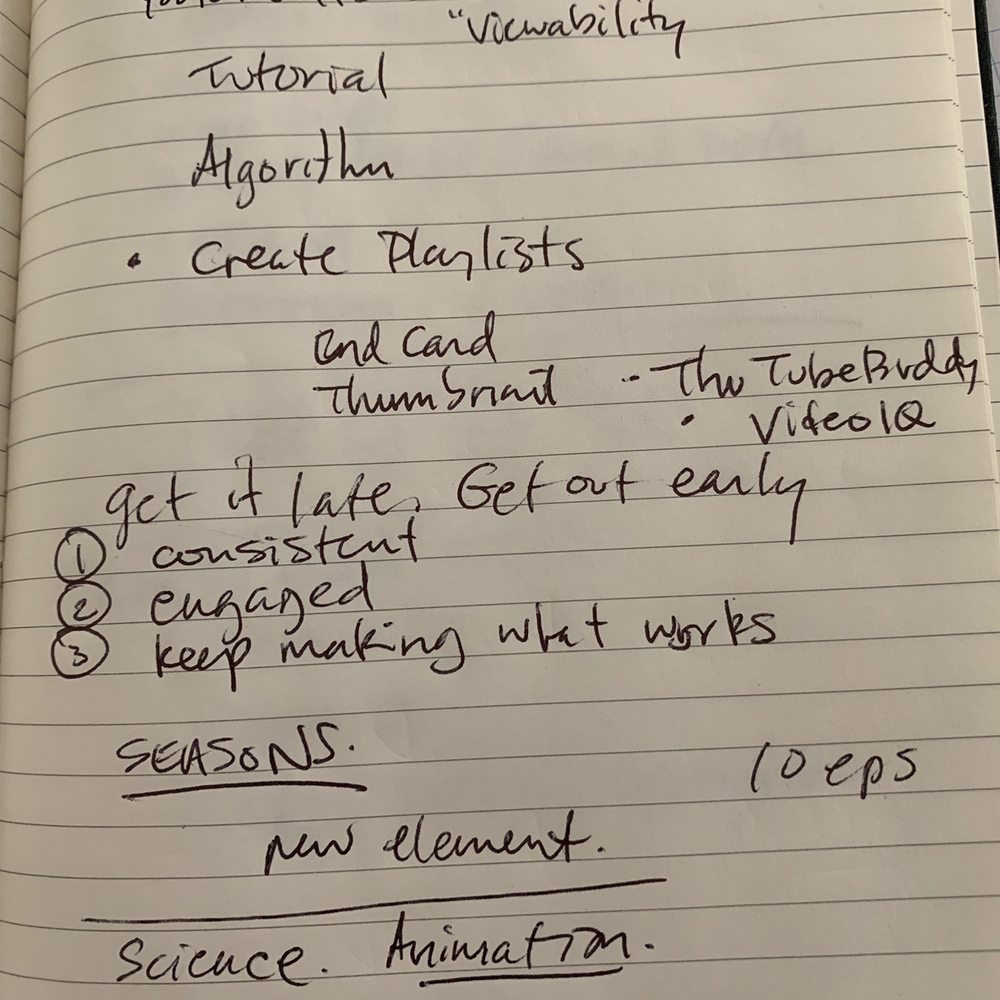 "Viewability
Tutorial
Algorithm
• Create Playlists
End Card
Thumbnail -• The TubeBuddy
• VideoIQ
get it late, Get out early
① consistent
② engaged
③ keep making what works
SEASONS.
10 eps
new element.
Science. Animation.